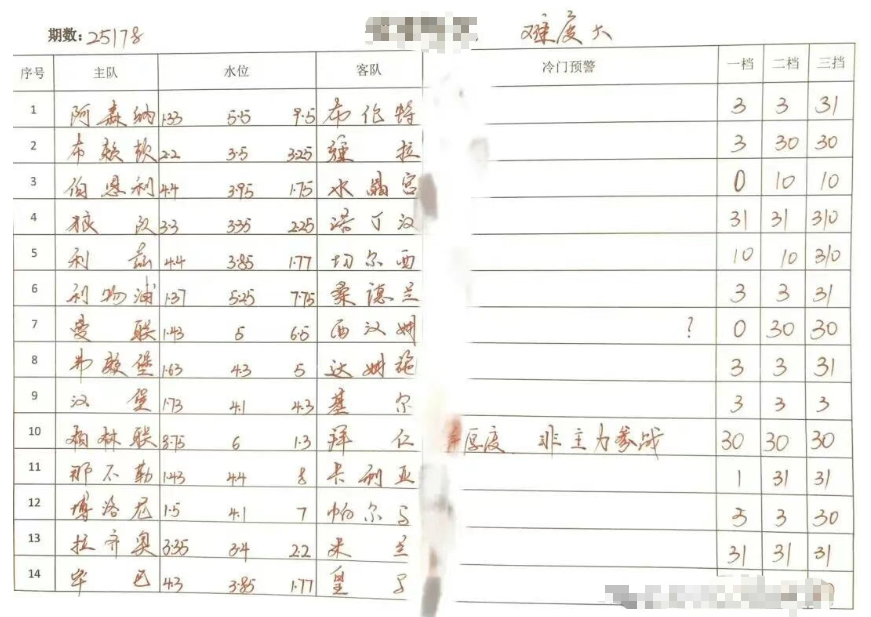 期数: 25178 难度大
序号 主队 水位 客队 冷门预警 一档 二档 三档
1 阿森纳 1.33 5.5 9.5 布伦特 3 3 31
2 布赖顿 2.2 3.5 3.25 维拉 3 30 30
3 伯恩利 4.4 3.95 1.75 水晶宫 0 10 10
4 狼队 3.3 3.35 2.25 诺丁汉 31 31 310
5 利兹 4.4 3.85 1.77 切尔西 10 10 310
6 利物浦 1.37 5.25 7.75 桑德兰 3 3 31
7 曼联 1.43 5 6.5 西汉姆 ? 0 30 30
8 弗赖堡 1.63 4.3 5 达姆 3 3 31
9 汉堡 1.73 4.1 4.3 基尔 3 3 3
10 柏林联 8.75 6 1.3 拜仁 厚度 非主力参战 30 30 30
11 那不勒 1.43 4.4 8 卡利亚 1 31 31
12 博洛尼 1.5 4.1 7 帕尔马 3 3 30
13 拉齐奥 3.35 3.4 2.2 米兰 31 31 31
14 毕巴 4.3 3.85 1.77 皇马